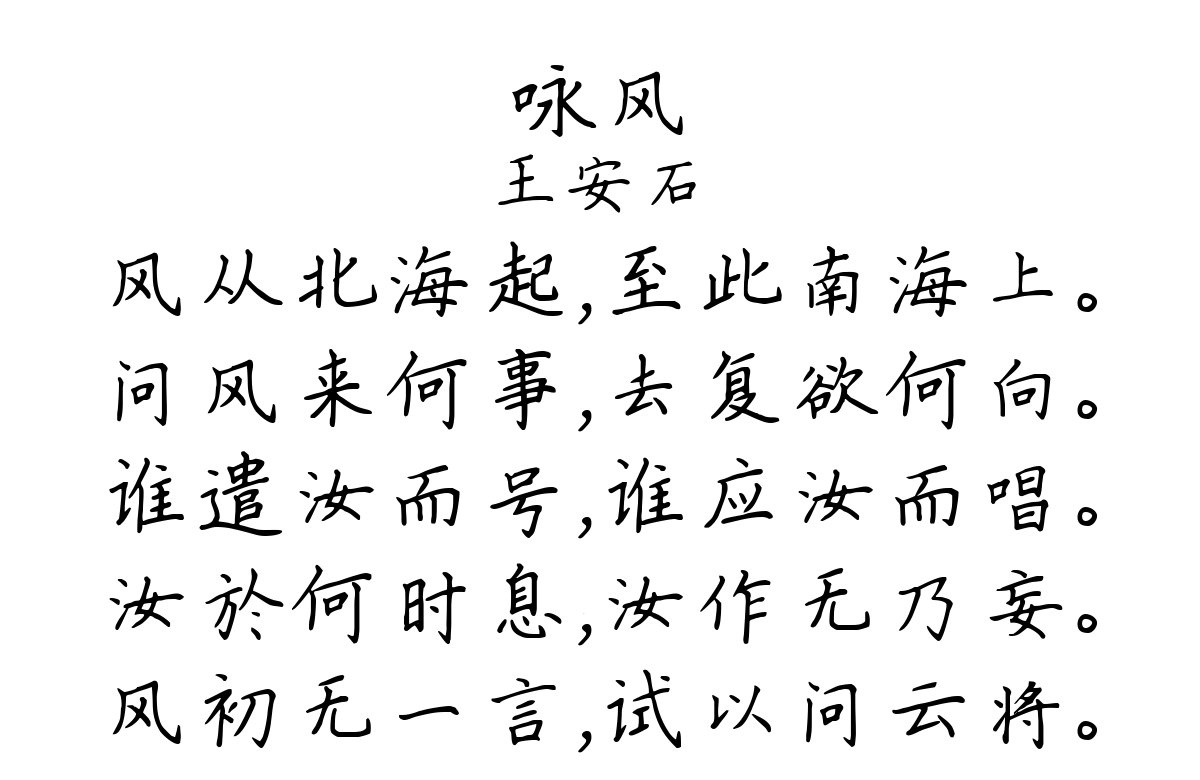 咏风
王安石
风从北海起,至此南海上。
问风来何事,去复欲何向。
谁遣汝而号,谁应汝而唱。
汝於何时息,汝作无乃妄。
风初无一言,试以问云将。